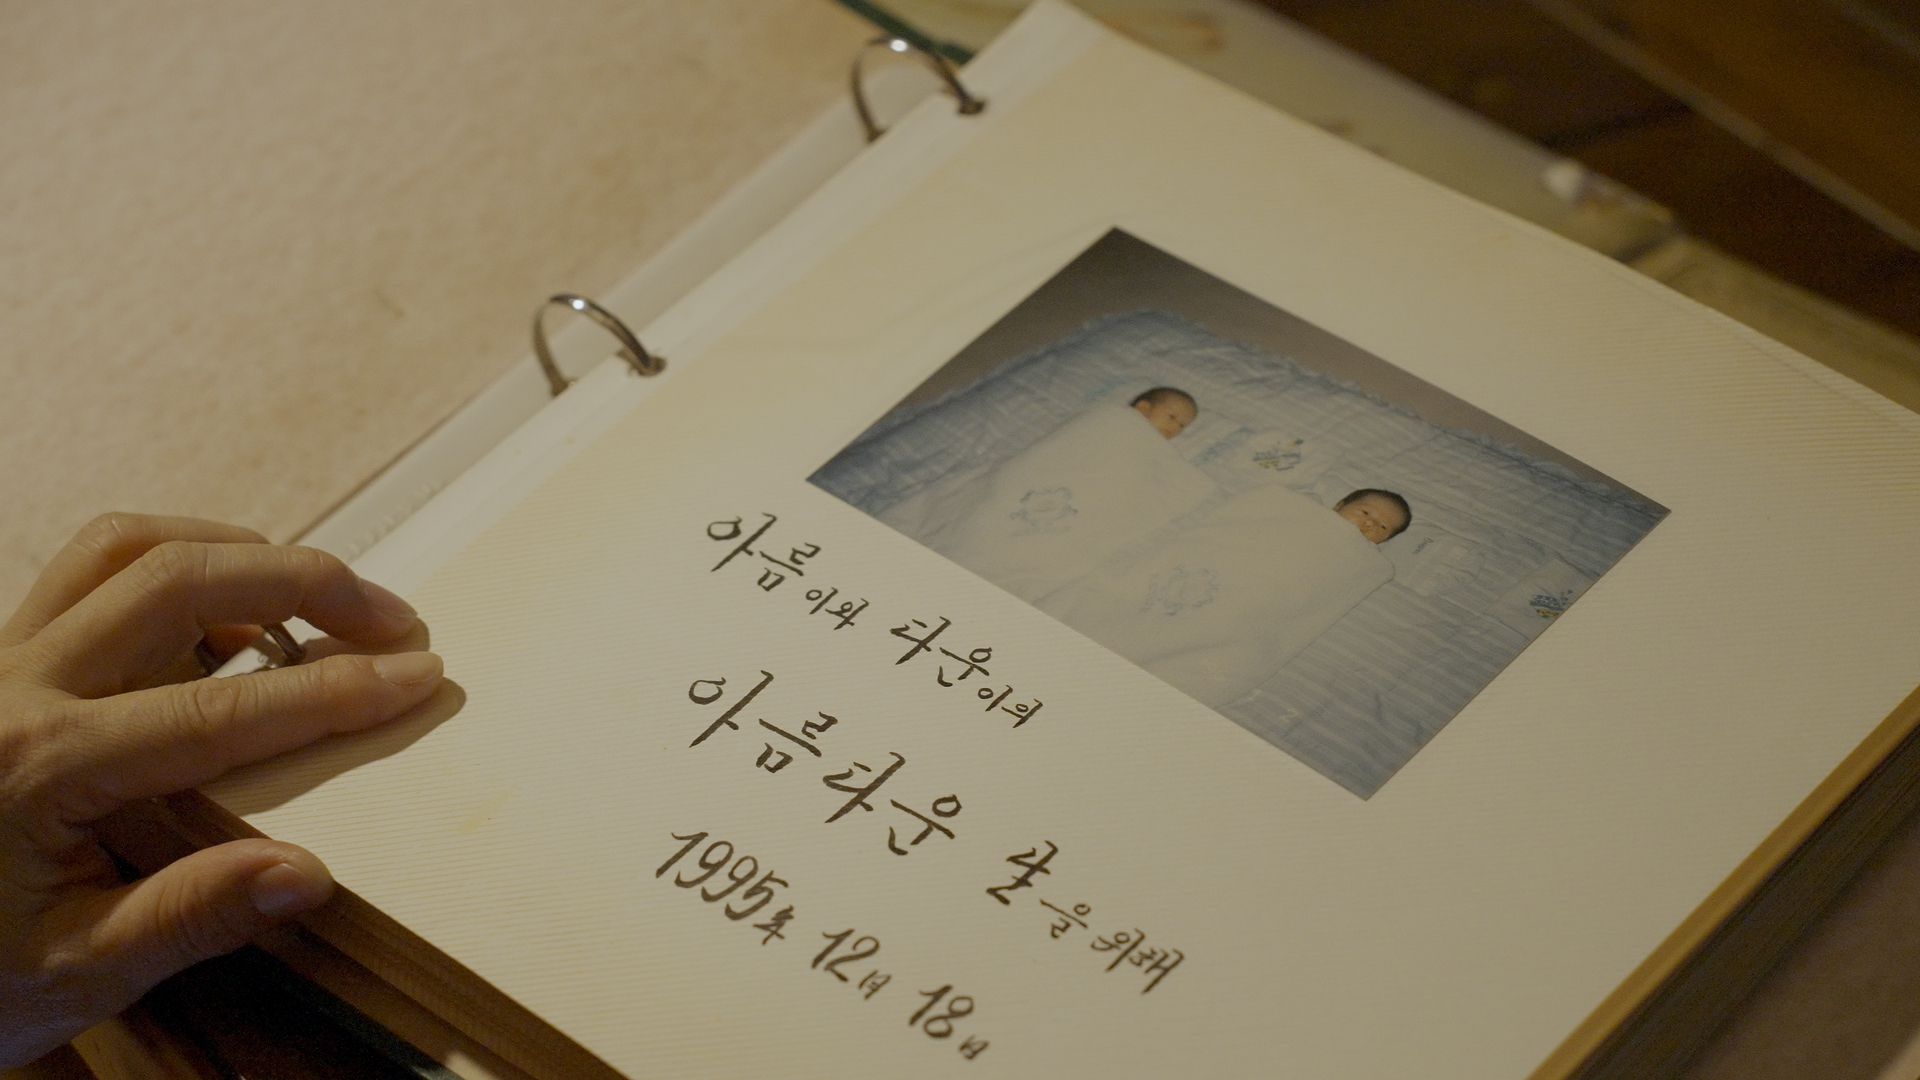 아름이와 다운이의
아름다운 삶을위해
1995年 12月 18日